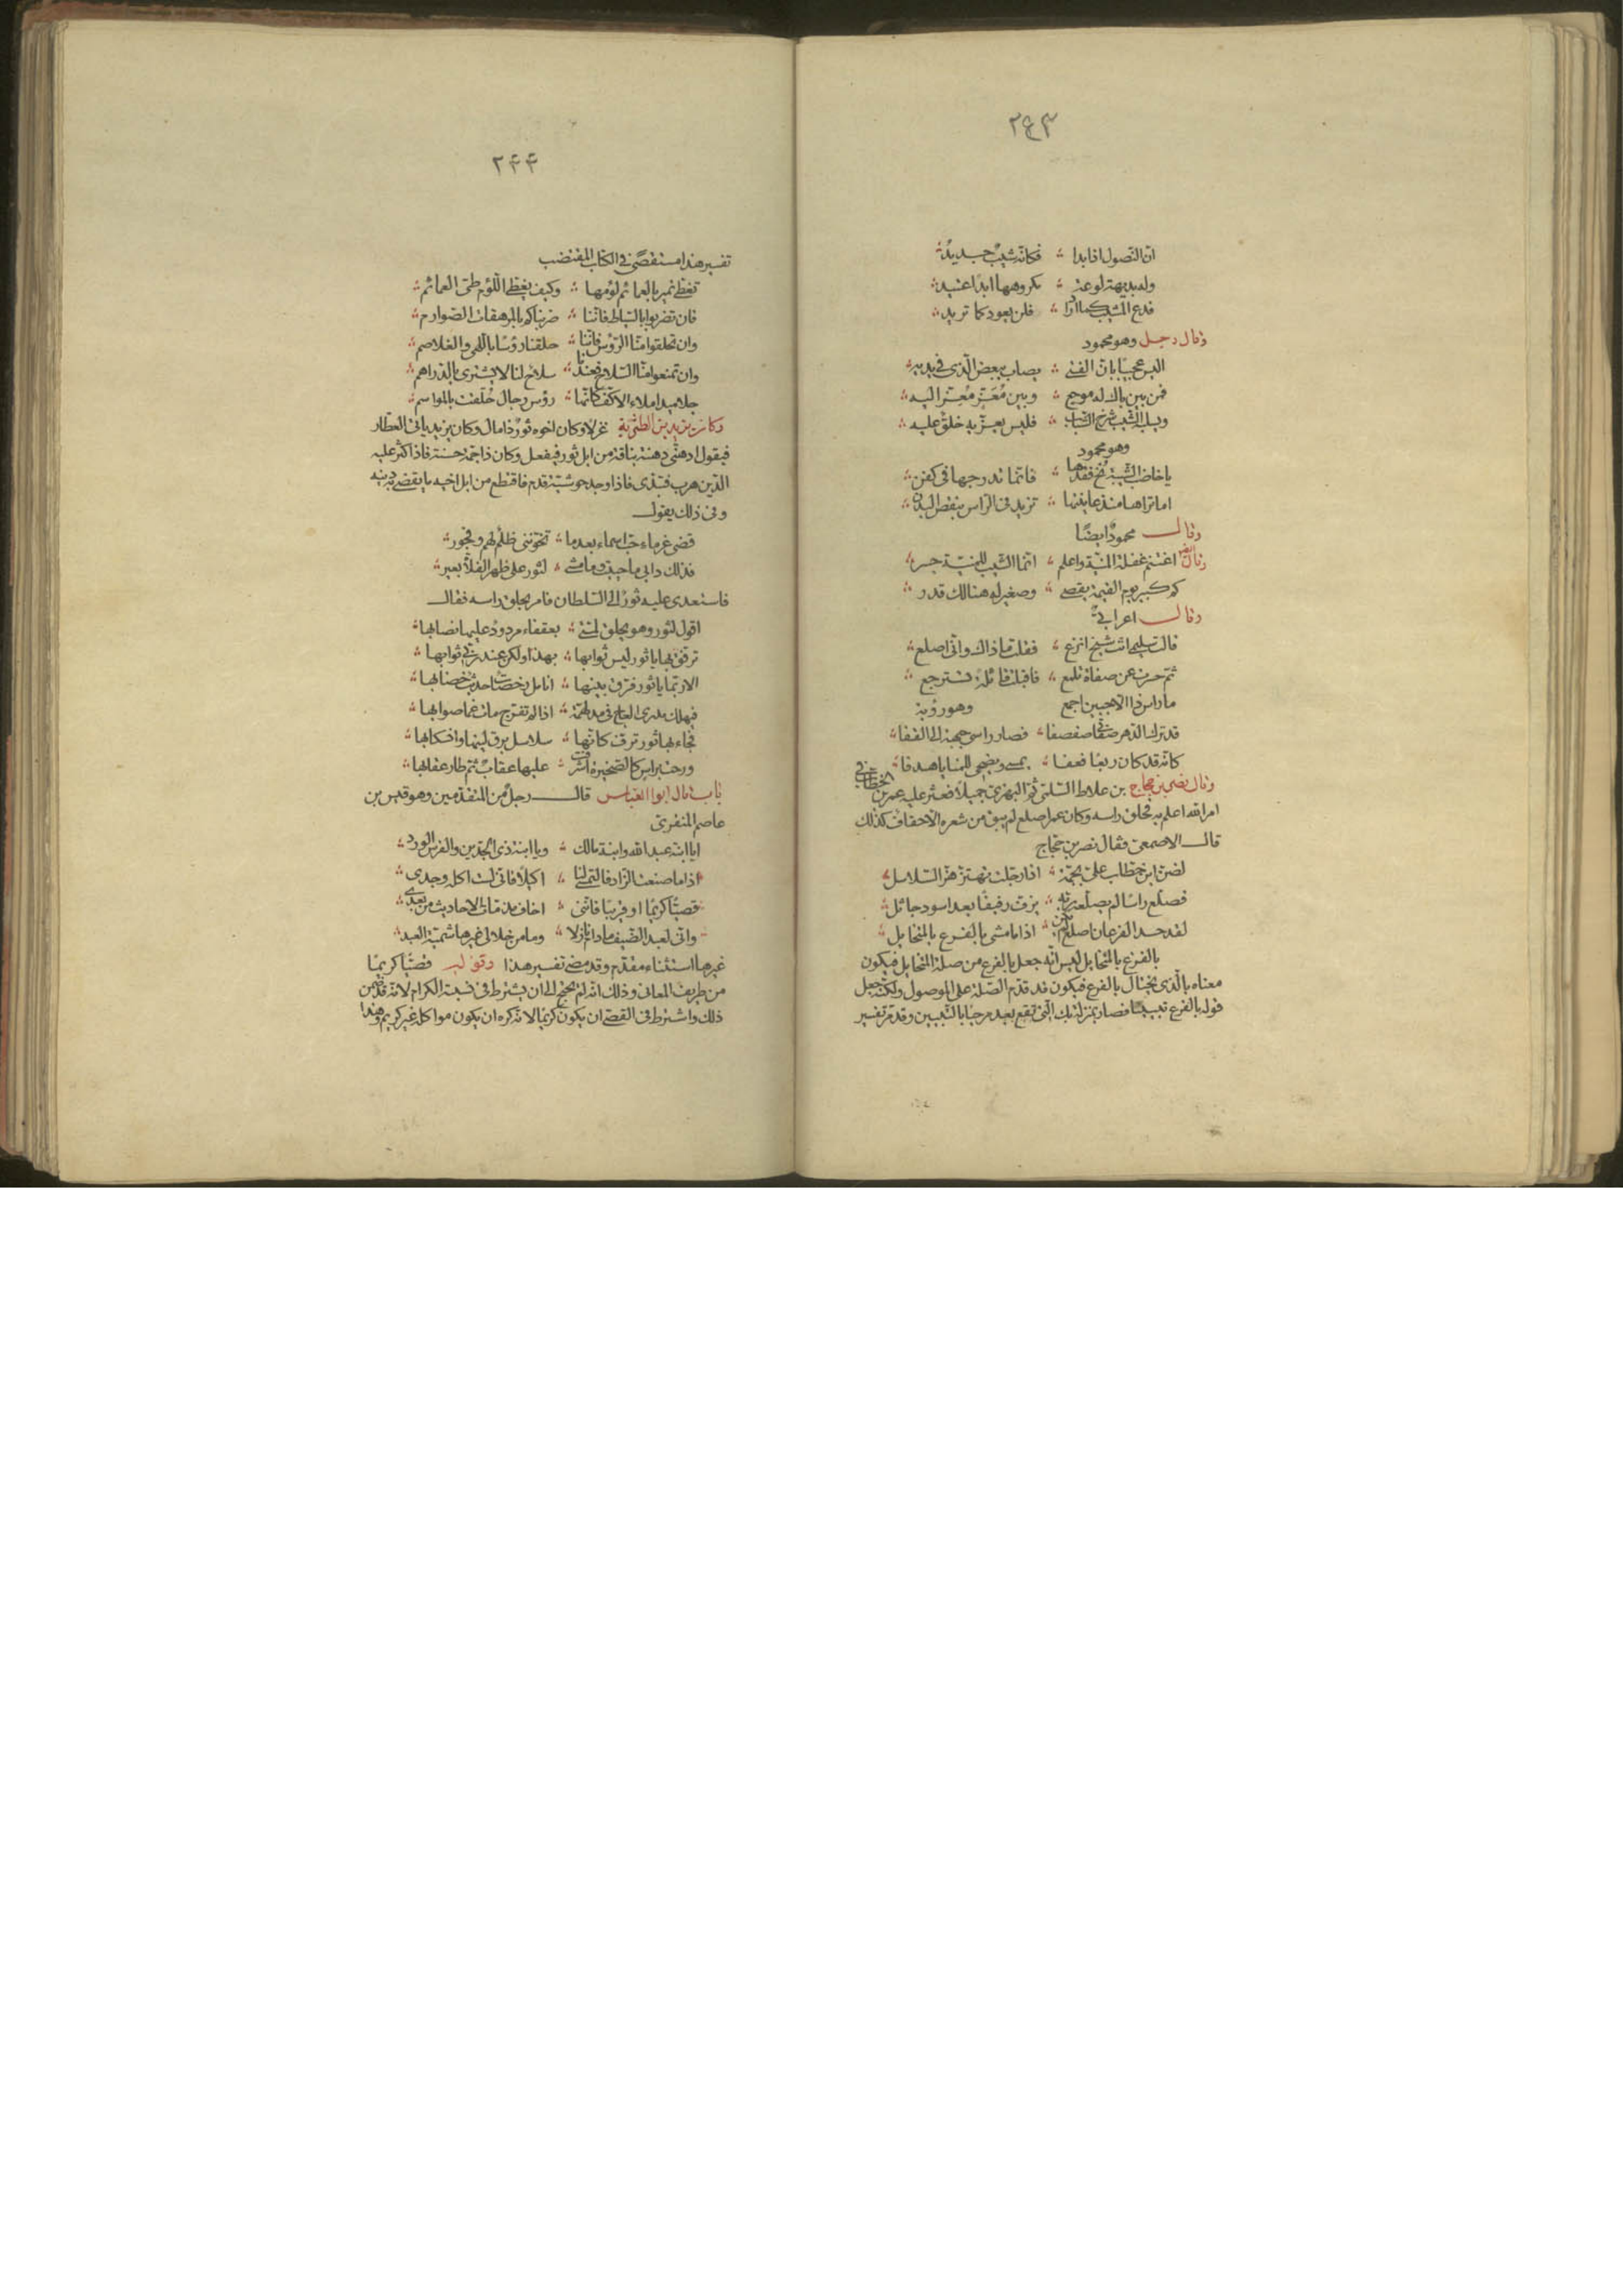 ٢٤٣
ان النصول اذا بدا ؞ فكانه شيب جديد ؞
وله بديهة لوعة ؞ مكروهها ابدا عتيد ؞
فدع المشيب كما اراد ؞ فلن يعود كما تريد ؞
وقال رجل وهو محمود
اليس عجيبا بان الفتى ؞ يصاب ببعض الذى فى يديه ؞
فمن بين باك له موجع ؞ وبين مُعَزّ مُغِذّ اليه ؞
ويسلبه الشيب شرخ الشباب ؞ فليس يعزّيه خلق عليه ؞
وهو محمود
يا خاضب الشيبة نح فقدها ؞ فانما تدرجها فى كفن ؞
اما تراها منذ عاينتها ؞ تزيد فى الراس بنقص البدن ؞
وقال محمودٌ ايضًا
وقال ايضا اغتنم غفلة المنيّة واعلم ؞ انما الشيب للمنيّة جسر ؞
كم كبير يوم القيمة يقصى ؞ وصغير له هنالك قدر ؞
وقال اعرابىٌّ
قالت سليمى انت شيخ انزع ؞ فقلت ما ذاك وانى اصلع ؞
ثم حسرت عن صفاة تلمع ؞ فاقبلت قائلة تسترجع ؞
ما راس ذا الا جبين اجمع وهو رؤبة
قد ترك الدهر صفاتى صفصفا ؞ فصار راسى جبهة الى القفا ؞
كانه قد كان ربعا فعفا ؞ يمسى ويضحى للمنايا هدفا ؞
وقال نصر بن حجاج بن علاط السلمى ثم البهزى جميلا فعثر عليه عمر بن الخطاب فى
امر الله اعلم به فحلق راسه وكان عمر اصلع لم يبق من شعره الا حفاف كذلك
قال الاصمعى فقال نصر بن حجاج
لضن ابن خطاب علىّ بجمّة ؞ اذا رجلت تهتز هز السلاسل ؞
فصلّع راسا لم يصلّعه ربّه ؞ يرف رفيفا بعد اسود جائل ؞
لقد حسد الفرعان اصلع لم يكن ؞ اذا ما مشى بالفرع بالمتخايل ؞
بالفرع بالمتخايل ليس انه جعل بالفرع من صلة المتخايل فيكون
معناه بالذى يختال بالفرع فيكون قد قدم الصلة على الموصول ولكنه جعل
قوله بالفرع تبيينا فصار بمنزلة بك التى تقع بعد مرحبا بالتبيين وقد مر تفسير
٢۴۴
تفسير هذا مستقصًى فى الكتاب المقتضب
تغطى نمير بالعمائم لؤمها ؞ وكيف يغطى اللؤم طى العمائم ؞
فان تضربوا بالسياط فاننا ؞ ضربناكم بالمرهفات الصوارم ؞
وان تحلقوا منا الرؤس فاننا ؞ حلقنا رؤسًا باللهى والغلاصم ؞
وان تمنعوا منا السلاح فعندنا ؞ سلاح لنا لا يشترى بالدراهم ؞
جلاميد املاء الاكف كانها ؞ رؤس رجال حُلّقت بالمواسم ؞
وكان يزيد بن الطثرية غزلا وكان اخوه ثورٌ ذا مال وكان يزيد ياتى العطار
فيقول ادهنّى دهنة بناقة من ابل ثور فيفعل وكان ذا جمة حسنة فاذا كثر عليه
الدين هرب فتبدى فاذا وجد حوشية قدم فاقتطع من ابل اخيه ما يقضى به دينه
وفى ذلك يقول
قضى غرماء حب اسماء بعد ما ؞ تخوننى ظلم لهم وفجور ؞
فذلك دابى ما حييت وما مشى ؞ لثور على ظهر الفلاة بعير ؞
فاستعدى عليه ثورٌ الى السلطان فامر بحلق راسه فقال
اقول لثور وهو يحلق لمّتى ؞ بعقفاء مردودٌ عليها نصابها ؞
ترفق بها يا ثور ليس ثوابها ؞ بهذا ولكن عند ربى ثوابها ؞
الا ربما يا ثور فرّق بينها ؞ انامل رخصات حديث خضابها ؞
فيهلك مدرى العاج فى مدلهمّة ؞ اذا لم تفرج مات غما صوابها ؞
فجاء بها ثور ترف كانها ؞ سلاسل برق لينها وانسكابها ؞
ورحت براس كالصخيرة اشرفت ؞ عليها عقابٌ ثم طار عقابها ؞
باب قال ابو العباس قال رجلٌ من المتقدمين وهو قيس بن
عاصم المنقرى
ايا ابنة عبد الله وابنة مالك ؞ ويا ابنة ذى الجدّين والفرس الورد ؞
اذا ما صنعت الزاد فالتمسى له ؞ اكيلاً فانى لست اكله وحدى ؞
قصيّا كريمًا او قريبًا فاننى ؞ اخاف مذمات الاحاديث من بعدى ؞
وانى لعبد الضيف ما دام نازلا ؞ وما من خلالى غيرها شيمة العبد ؞
غيرها استثناء مقدم وقد مضى تفسير هذا وقوله قصيًّا كريمًا
من طريف المعانى وذلك انه لم يحتج الى ان يشترط فى نسبته الكرام لانه قد ضمن
ذلك واشترط فى القصىّ ان يكون كريمًا لانه كره ان يكون مواكله غير كريم وهذا